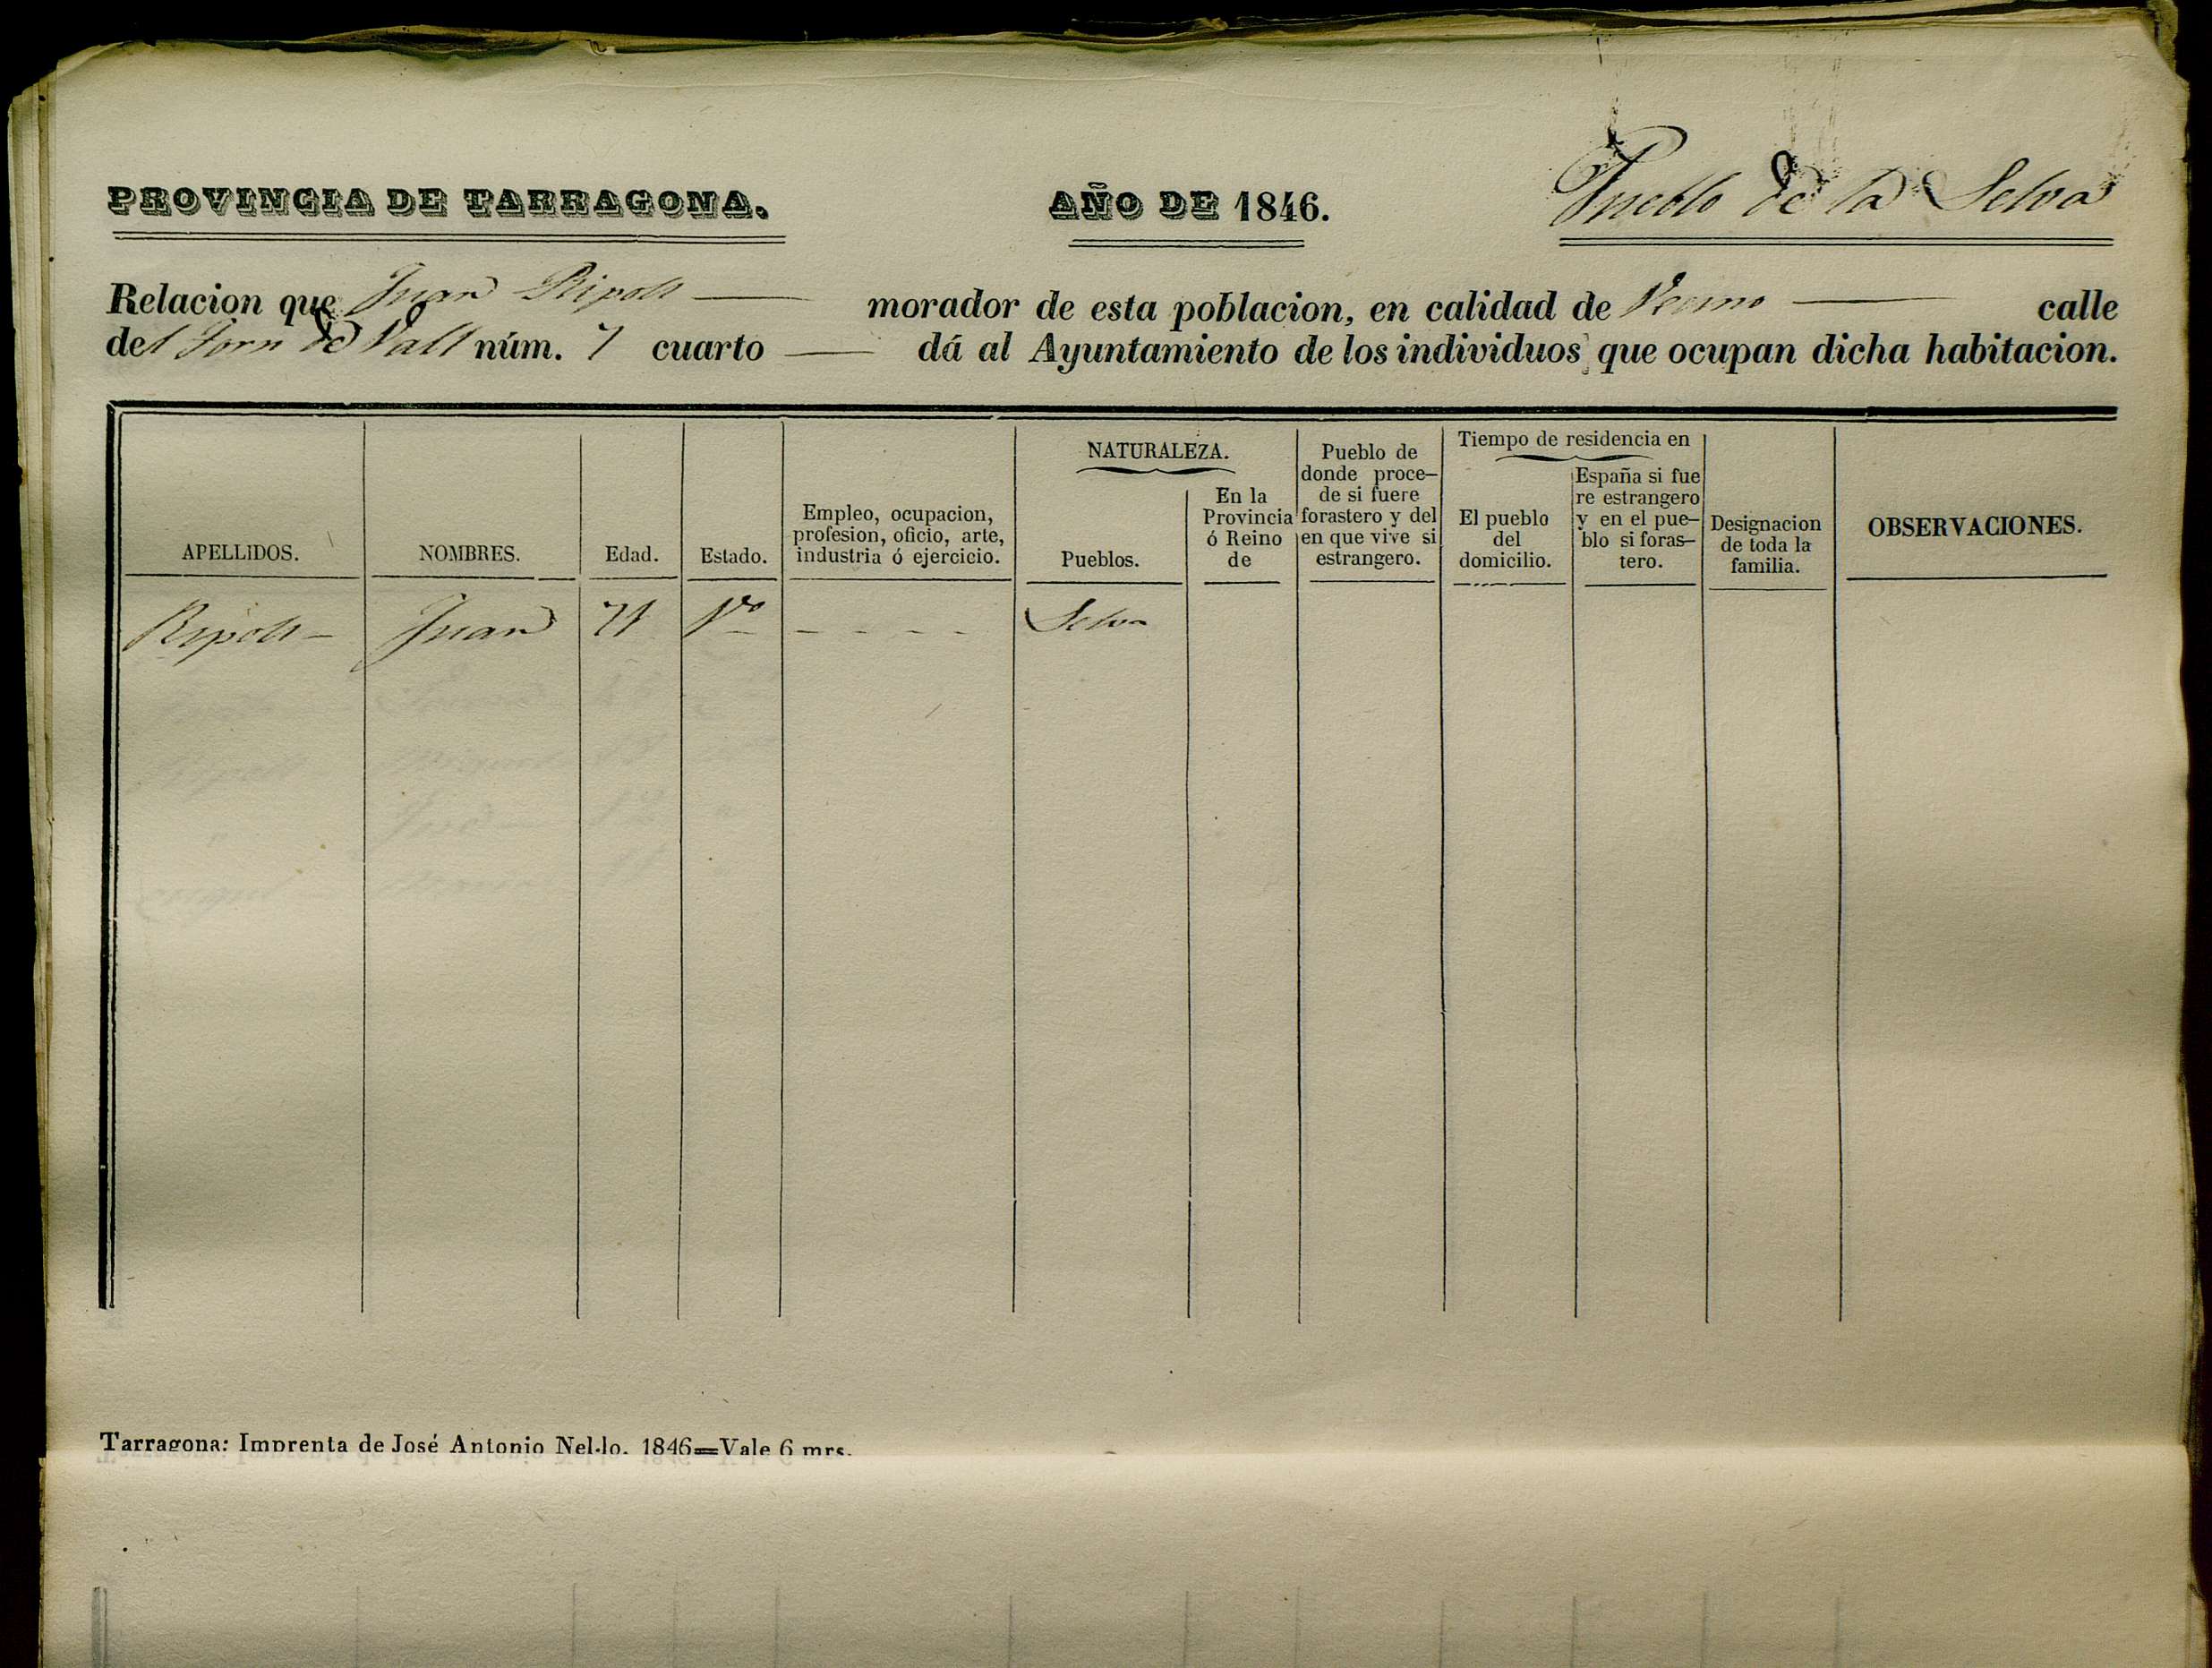 PROVINCIA DE TARRAGONA. AÑO DE 1846. Pueblo de la Selva
Relacion que Juan Ripoll morador de esta poblacion, en calidad de Vecino calle
del Forn de Vall núm. 7 cuarto — dá al Ayuntamiento de los individuos que ocupan dicha habitacion.
APELLIDOS.
NOMBRES.
Edad.
Estado.
Empleo, ocupacion,
profesion, oficio, arte,
industria ó ejercicio.
NATURALEZA.
Pueblos.
En la
Provincia
ó Reino
de
Pueblo de
donde proce–
de si fuere
forastero y del
en que vive si
estrangero.
Tiempo de residencia en
El pueblo
del
domicilio.
España si fue
re estrangero
y en el pue–
blo si foras–
tero.
Designacion
de toda la
familia.
OBSERVACIONES.
Ripoll – Juan 71 Vdo - - - - Selva
Tarragona: Imprenta de José Antonio Nel·lo. 1846=Vale 6 mrs.